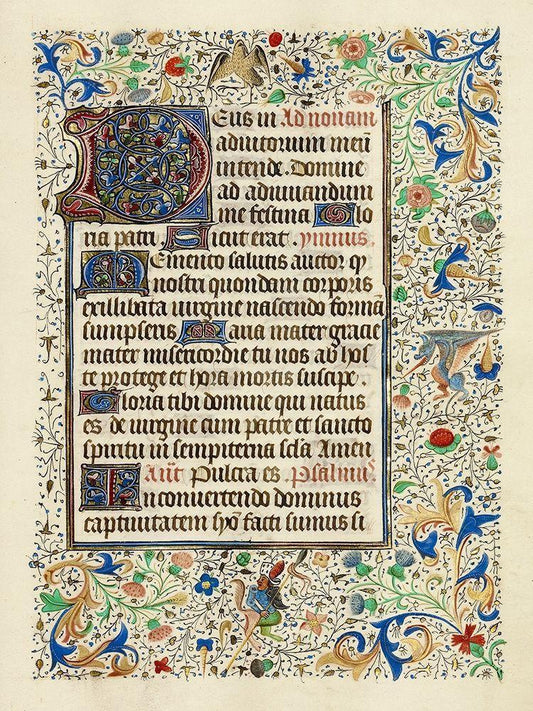 Deus in Ad nonam
adiutorium meū
intende. Domine
ad adiuuandum
me festina Glo
ria patri Sicut erat. ymnus.
Memento salutis auctor q̄
nostri quondam corporis
ex illibata uirgine nascendo formā
sumpseris Maria mater gracie
mater misericordie tu nos ab hos
te protege et hora mortis suscipe.
Gloria tibi domine qui natus
es de uirgine cum patre et sancto
spiritu in sempiterna scl̄a Amen
Añt Pulcra es. Psalmus
In conuertendo dominus
captiuitatem syō facti sumus si